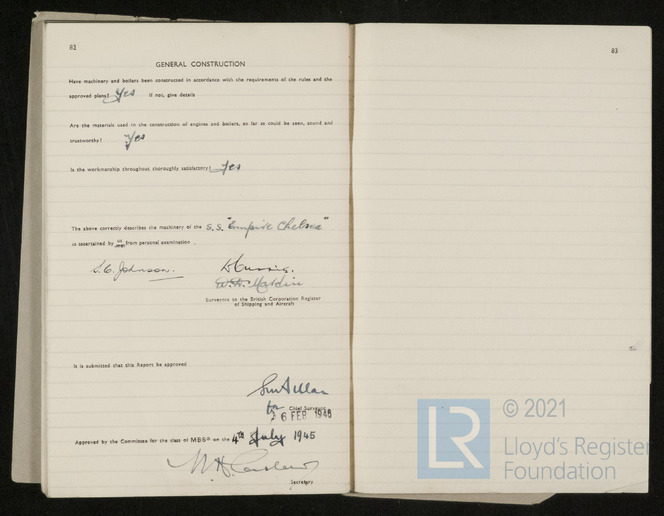 82
GENERAL CONSTRUCTION
Have machinery and boilers been constructed in accordance with the requirements of the rules and the
approved plans? Yes If not, give details
Are the materials used in the construction of engines and boilers, so far as could be seen, sound and
trustworthy? Yes
Is the workmanship throughout thoroughly satisfactory? Yes
The above correctly describes the machinery of the S.S. "Empire Chelsea"
as ascertained by us from personal examination
S. C. Johnson.
Surveyors to the British Corporation Register
of Shipping and Aircraft
It is submitted that this Report be approved
for Chief Surveyor
26 FEB 1946
Approved by the Committee for the class of MBS* on the 4th July 1945
Secretary
83
© 2021
LR
Lloyd's Register
Foundation